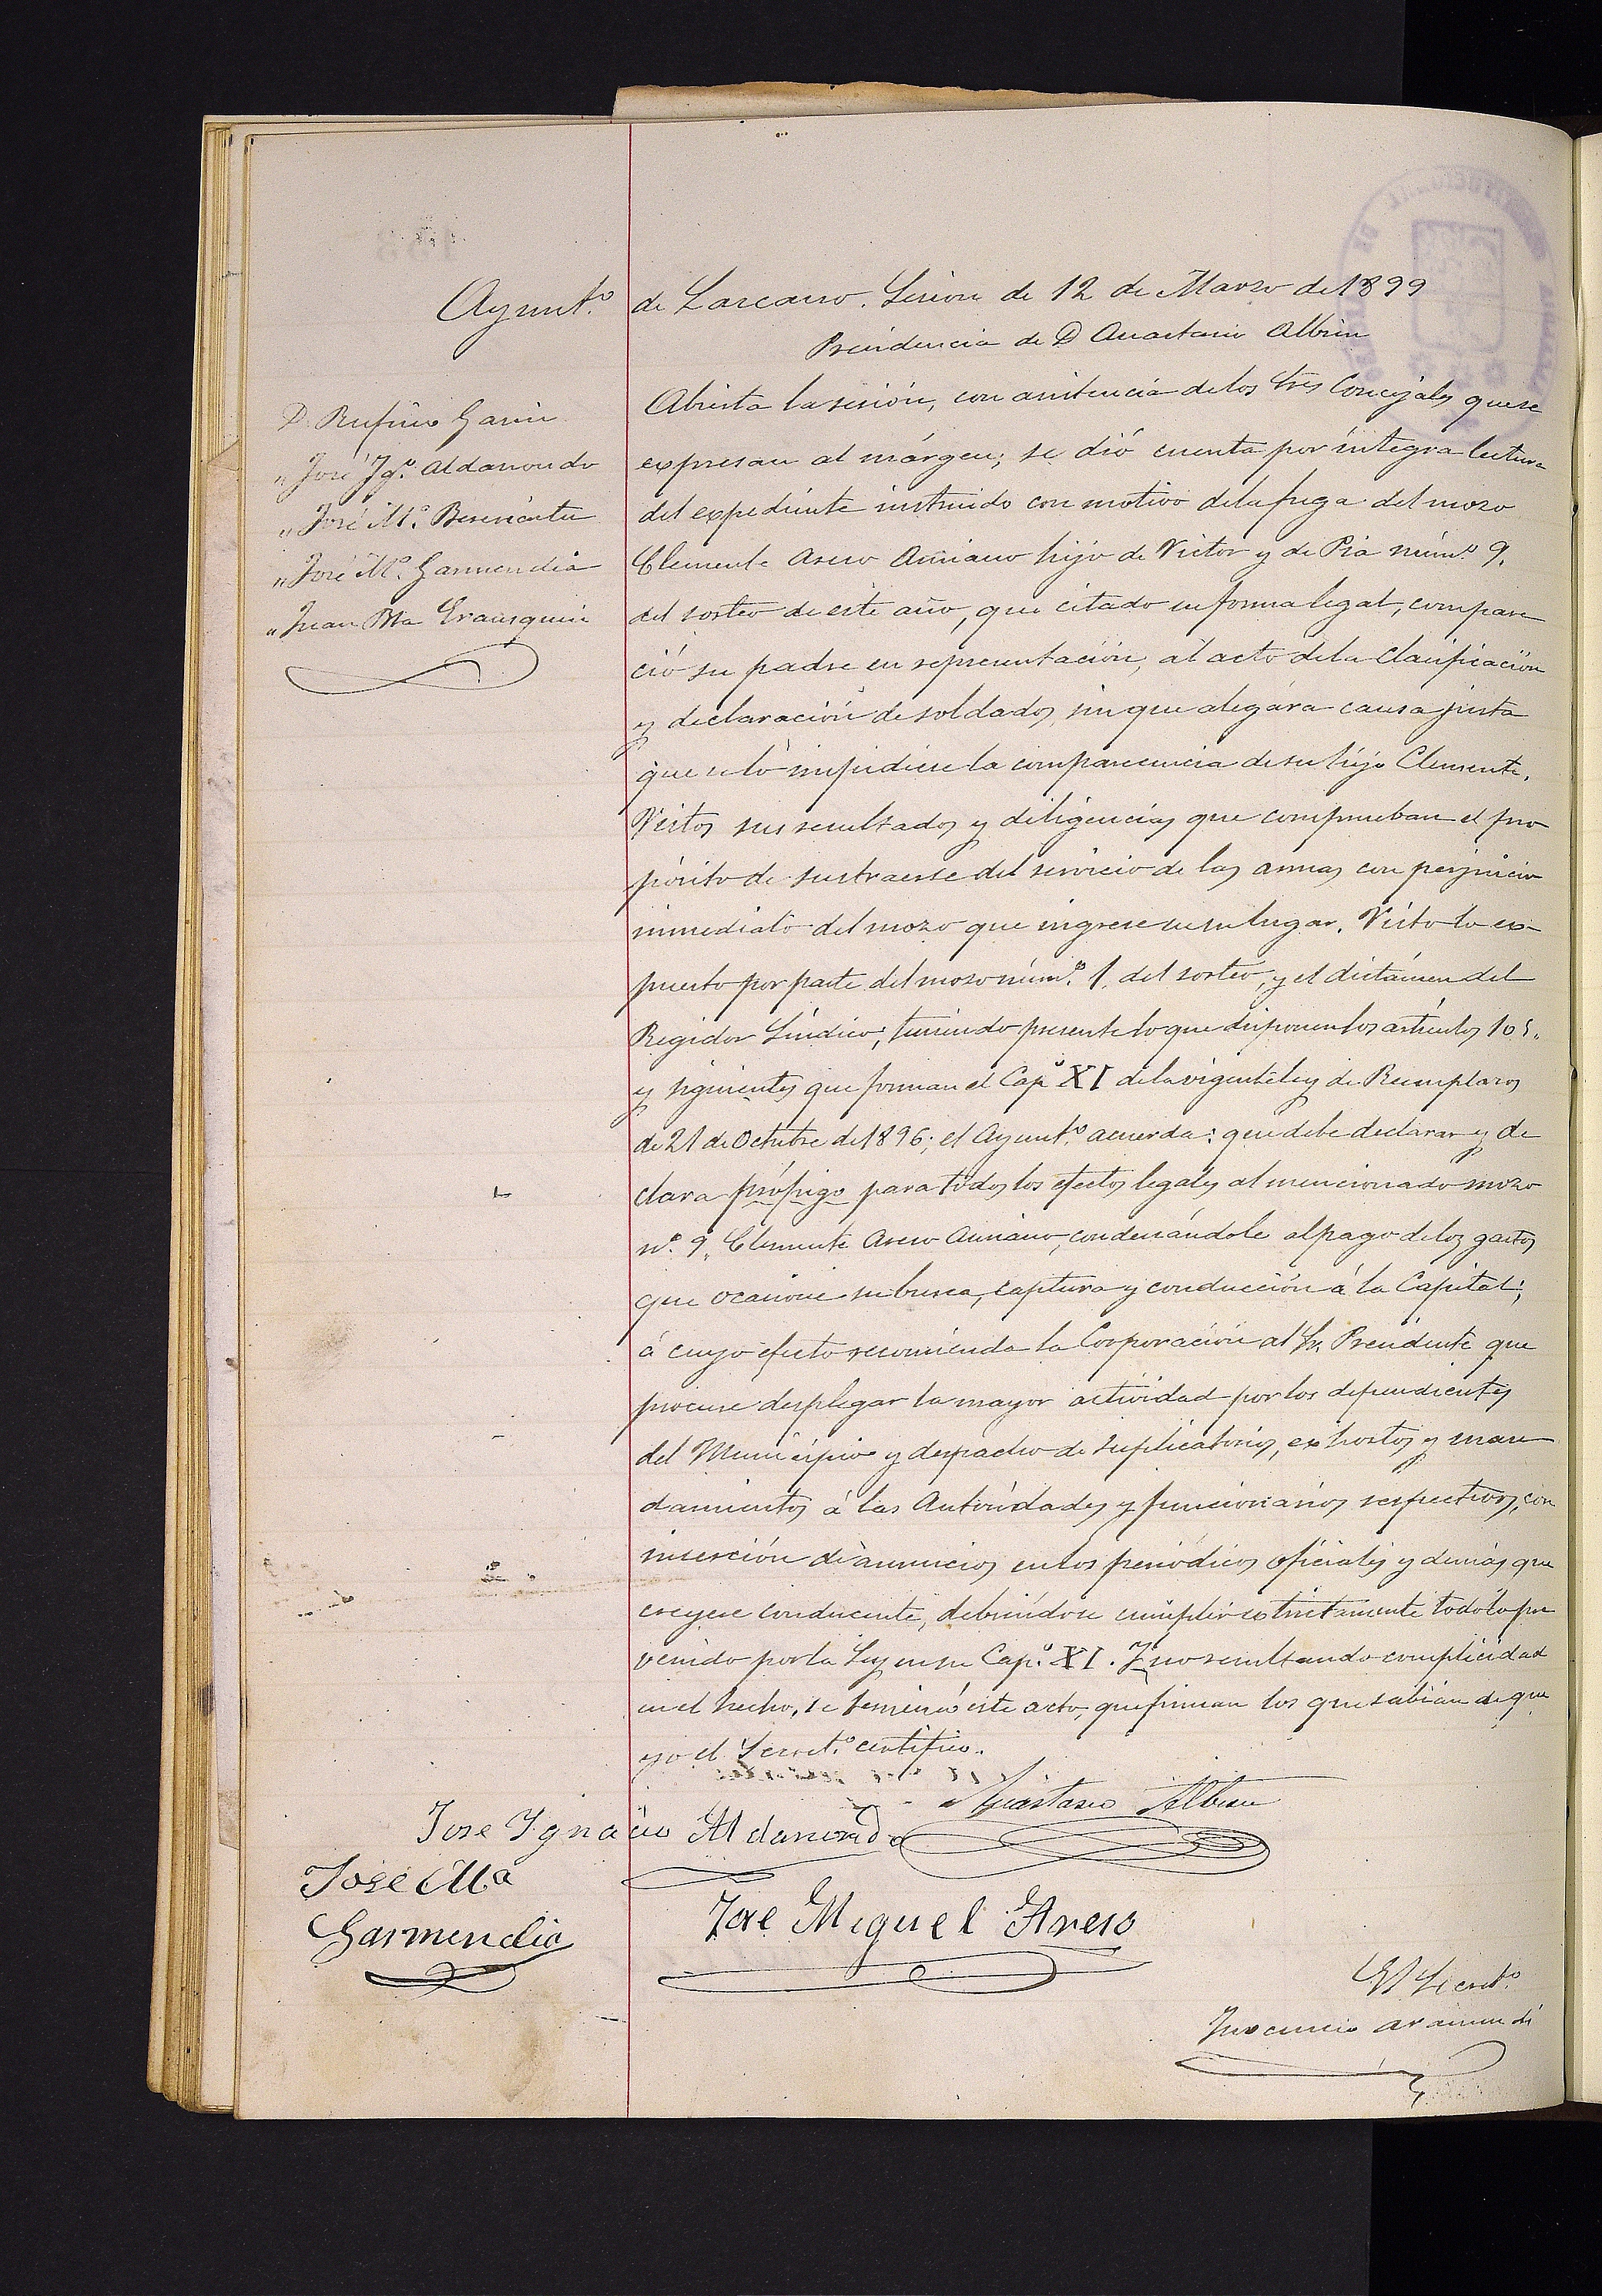 Ayunt.º de Lazcano. Sesion de 12 de Marzo de 1899
Presidencia de D Anastasio Albisu
D. Rufino Garin
" José Ygº. Aldanondo
" José Mª. Beseicartu
" José Mª. Garmendia
" Juan Bta Erausquin
Abierta la sesión, con asistencia de los tres Concejales que se
expresan al márgen; se dió cuenta por íntegra lectura
del expediente instruido con motivo de la fuga del mozo
Clemente Areso Auciano hijo de Victor y de Pia númº. 9.
del sorteo de este año, que citado en forma legal, compare
ció su padre en representación, al acto de la Clasificación
y declaración de soldados, sin que alegára causa justa
que le impidiese la comparecencia de su hijo Clemente.
Vistos sus resultados y diligencias que comprueban el pro
pósito de sustraerse del servicio de las armas con perjuicio
inmediato del mozo que ingrese en su lugar. Visto lo ex-
puesto por parte del mozo númº. 1. del sorteo, y el dictámen del
Regidor Síndico; teniendo presente lo que disponen los artículos 105.
y siguientes que forman el Capº XI de la vigente ley de Reemplazos
de 21 de Octubre de 1896; el Ayuntº. acuerda: que debe declarar y de
clara prófugo para todos los efectos legales al mencionado mozo
nº. 9. Clemente Areso Auciano, condenándole al pago de los gastos
que ocasione su busca, captura y conducción á la Capital;
á cuyo efecto recomienda la Corporación al Sr. Presidente que
procure desplegar la mayor actividad por los dependientes
del Municipio y despacho de suplicatorios, exhortos y man
damientos á las Autoridades y funcionarios respectivos, con
inserción de anuncios en los periódicos oficiales y demás que
creyese conducente, debiéndose cumplir estrictamente todo lo pre
venido por la Ley en su Cap.º XI. Y no resultando complicidad
en el hecho, se terminó este acto, que firman los que sabian de que
yo el Secretº. certifico.
Anastasio Albisu
Jose Ygnacio Aldanondo
José Ma
Garmendia
José Miguel Areso
El Secretº
Inocencio Araimendi